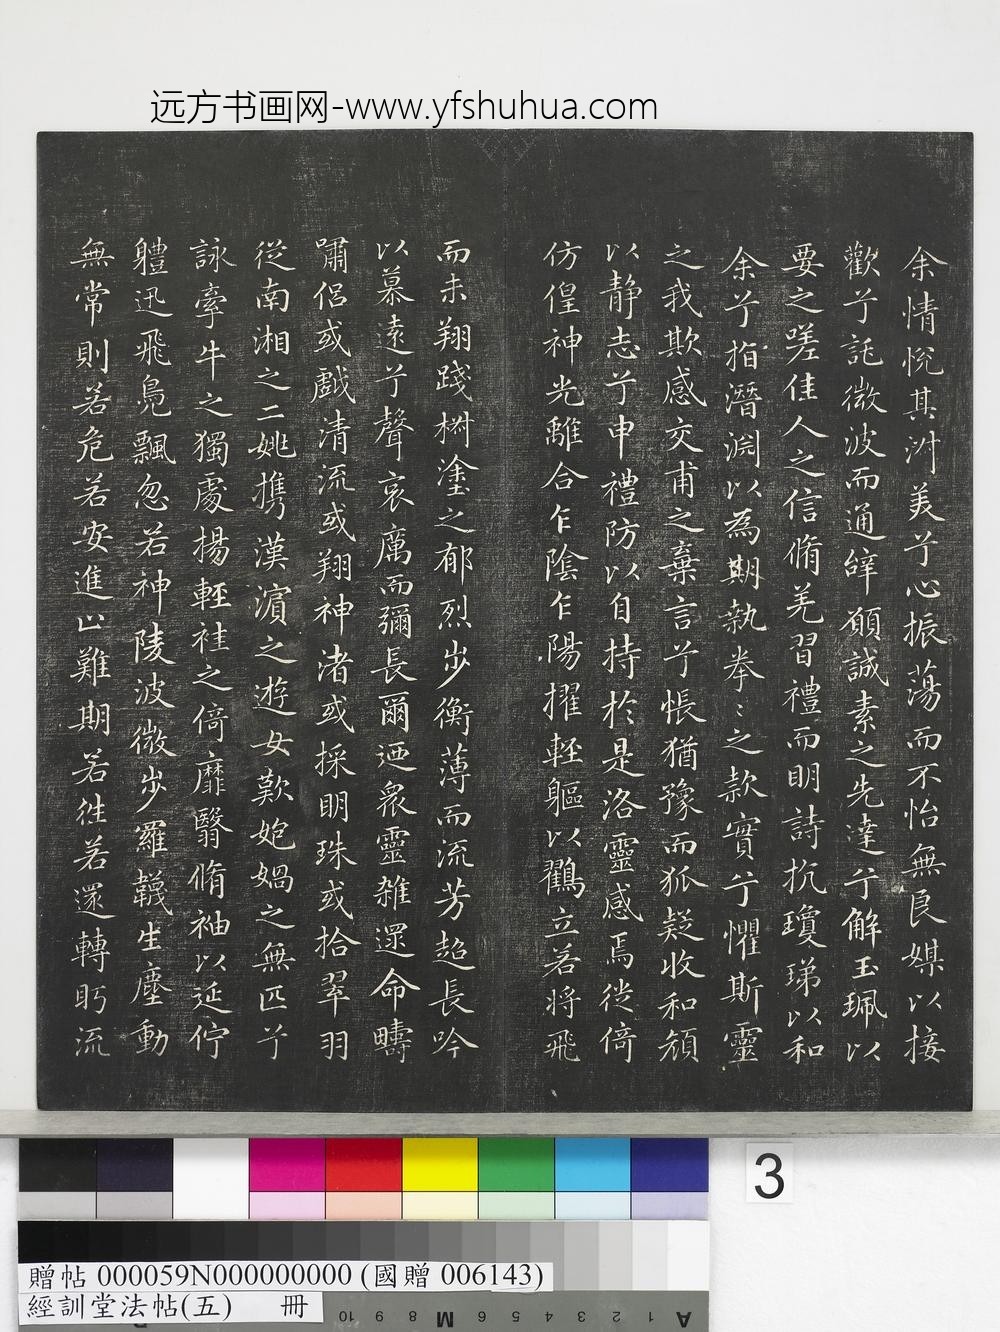 远方书画网-www.yfshuhua.com
余情悅其淑美兮心振蕩而不怡無良媒以接
歡兮託微波而通辭願誠素之先達兮解玉珮以
要之嗟佳人之信脩羌習禮而明詩抗瓊珶以和
余兮指潛淵以為期執拳〻之款實兮懼斯靈
之我欺感交甫之棄言兮悵猶豫而狐疑收和顏
以静志兮申禮防以自持於是洛靈感焉徙倚
仿偟神光離合乍陰乍陽擢輕軀以鶴立若將飛
而未翔踐椒塗之郁烈步衡薄而流芳超長吟
以慕遠兮聲哀厲而彌長爾迺衆靈雜遝命疇
嘯侶或戲清流或翔神渚或採明珠或拾翠羽
從南湘之二姚携漢濱之遊女歎匏媧之無匹兮
詠牽牛之獨處揚輕袿之倚靡翳脩袖以延佇
軆迅飛鳧飄忽若神陵波微步羅韈生塵動
無常則若危若安進止難期若往若還轉眄流
3
贈帖 000059N000000000 (國贈 006143)
經訓堂法帖(五) 冊
10 9 8 M 6 5 4 3 2 1 A